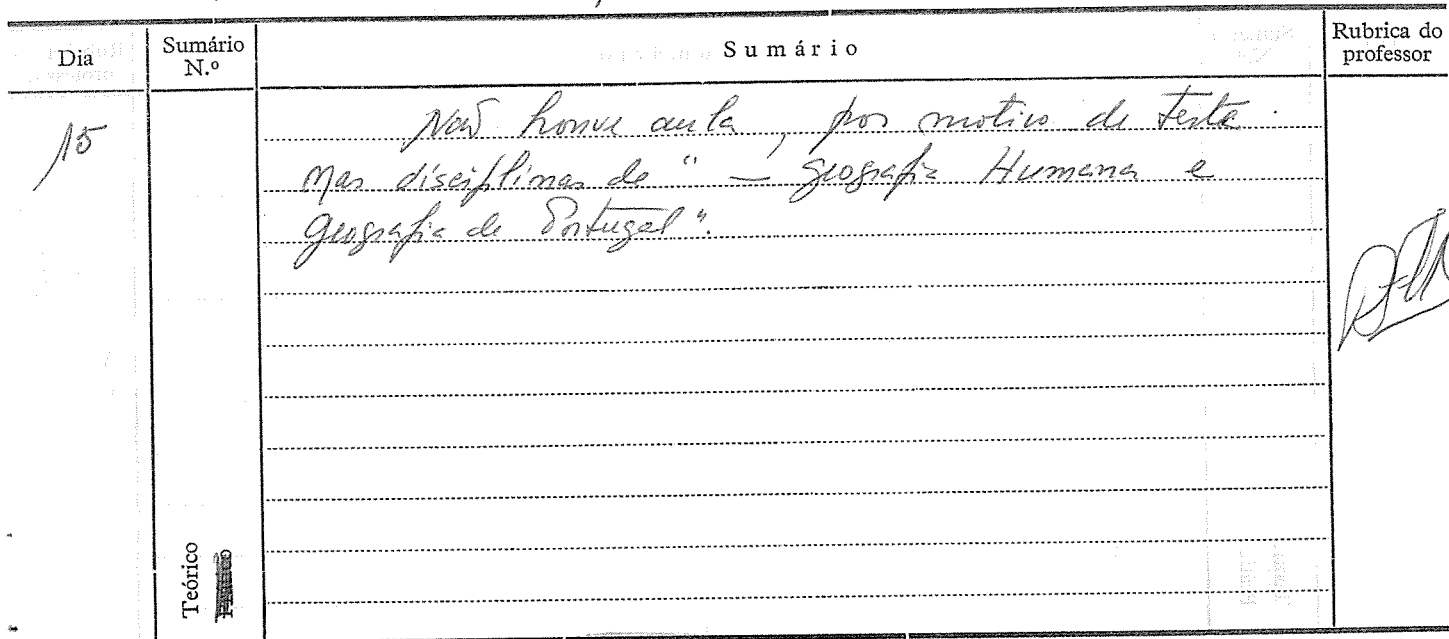 Dia
Sumário N.º
Sumário
Rubrica do professor
15
Não houve aula, por motivo de teste
nas disciplinas de "— Geografia Humana e
Geografia de Portugal".
Teórico